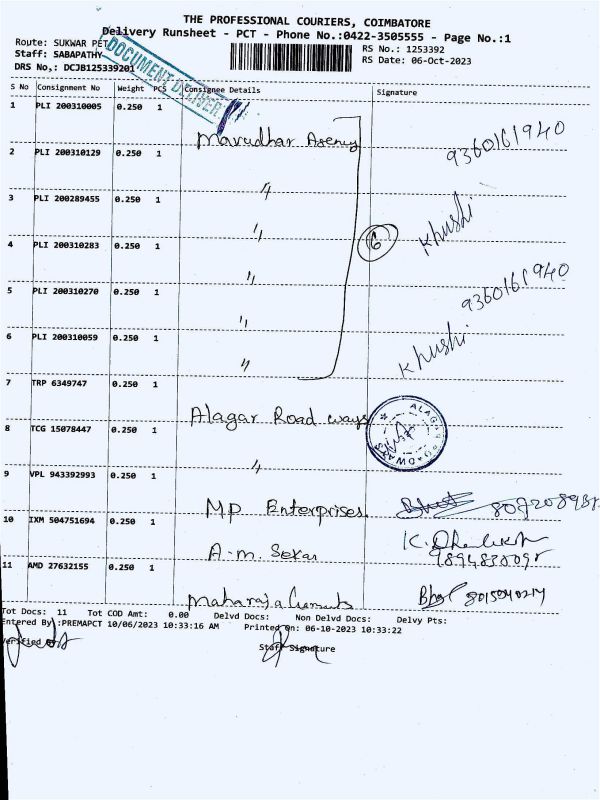 THE PROFESSIONAL COURIERS, COIMBATORE
Delivery Runsheet - PCT - Phone No.:0422-3505555 - Page No.:1
Route: SUKWAR PET
RS No.: 1253392
Staff: SABAPATHY
RS Date: 06-Oct-2023
DRS No,: DCJB125339201
DOCUMENT DELIVER
S No Consignment No Weight PCS Consignee Details Signature
1 PLI 200310005 0.250 1 Marudhar Agency 9360161940
2 PLI 200310129 0.250 1 "
3 PLI 200289455 0.250 1 " Khushi
4 PLI 200310283 0.250 1 " 6
5 PLI 200310270 0.250 1 " 9360161940
6 PLI 200310059 0.250 1 " Khushi
7 TRP 6349747 0.250 1 Alagar Road ways
8 TCG 15078447 0.250 1 "
9 VPL 943392993 0.250 1 MP Enterprises
10 IXM 504751694 0.250 1 A-m. Sekar
11 AMD 27632155 0.250 1 Maharaja
Tot Docs: 11 Tot COD Amt: 0.00 Delvd Docs: Non Delvd Docs: Delvy Pts:
Entered By :PREMAPCT 10/06/2023 10:33:16 AM Printed On: 06-10-2023 10:33:22
Verified By
Staff Signature